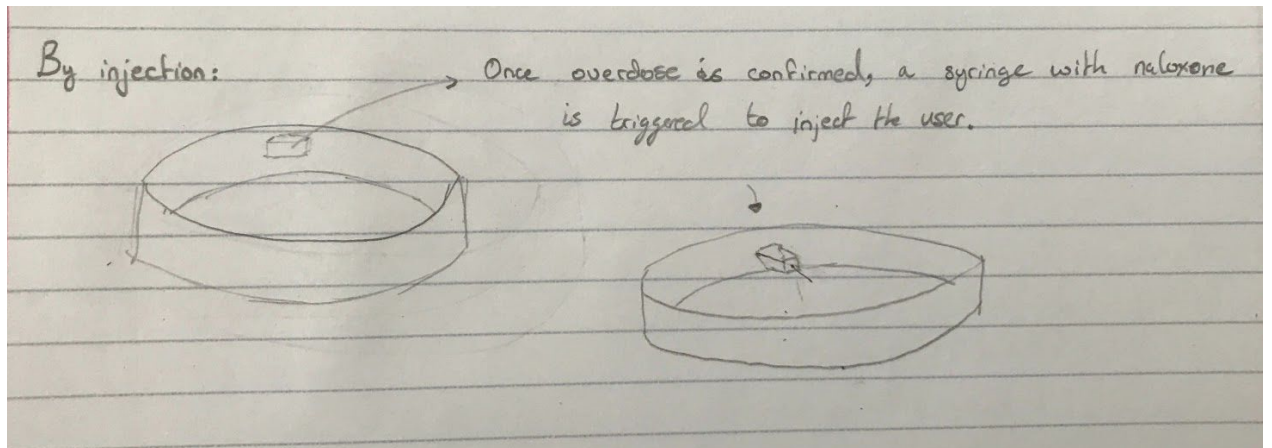 By injection:
Once overdose is confirmed, a syringe with naloxone
is triggered to inject the user.